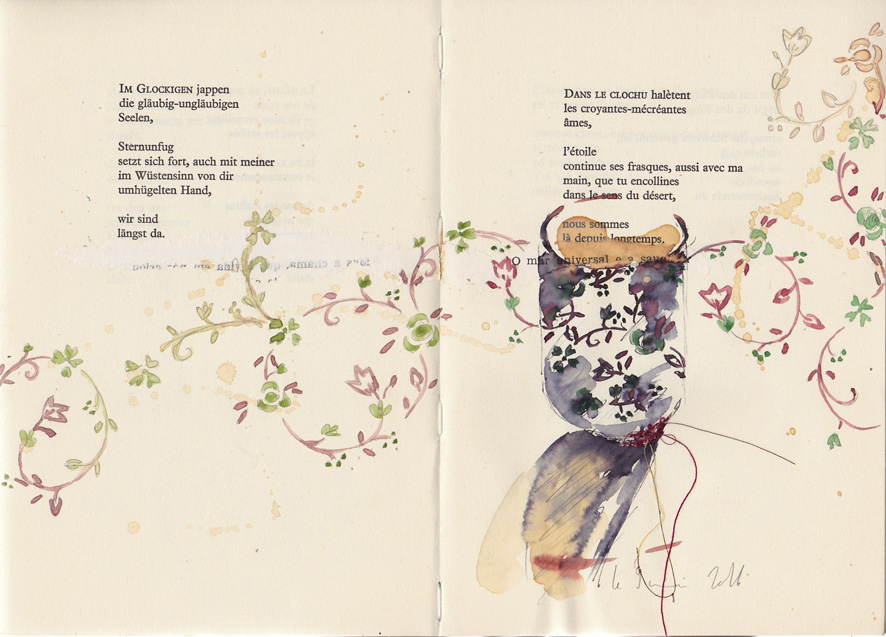 IM GLOCKIGEN jappen
die gläubig-ungläubigen
Seelen,
Sternunfug
setzt sich fort, auch mit meiner
im Wüstensinn von dir
umhügelten Hand,
wir sind
längst da.
DANS LE CLOCHU halètent
les croyantes-mécréantes
âmes,
l'étoile
continue ses frasques, aussi avec ma
main, que tu encollines
dans le sens du désert,
nous sommes
là depuis longtemps.
O mar universal e a